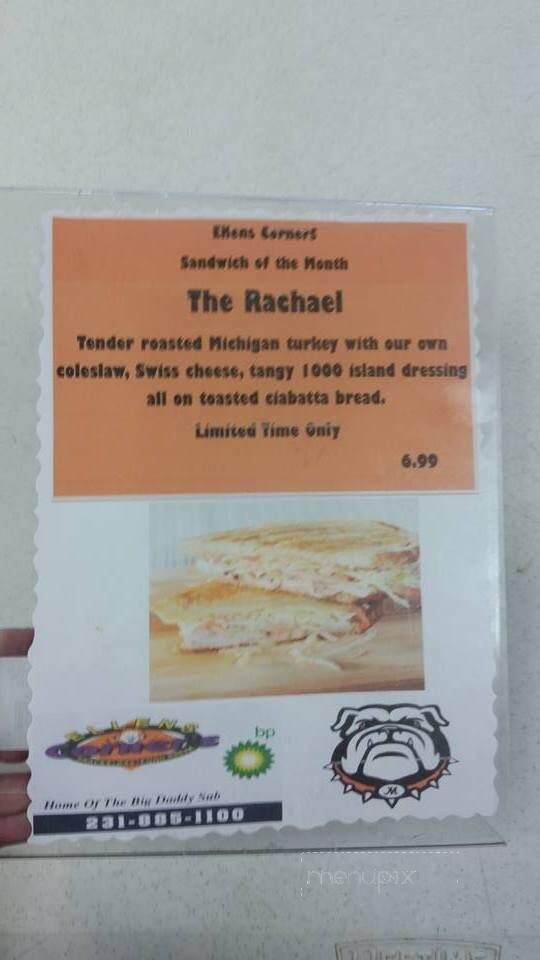 Ellens Corners
Sandwich of the Month
The Rachael
Tender roasted Michigan turkey with our own
coleslaw, Swiss cheese, tangy 1000 island dressing
all on toasted ciabatta bread.
Limited Time Only
6.99
ALLENS
Corners
bp
Home Of The Big Daddy Sub
231-885-1100
M
menupix